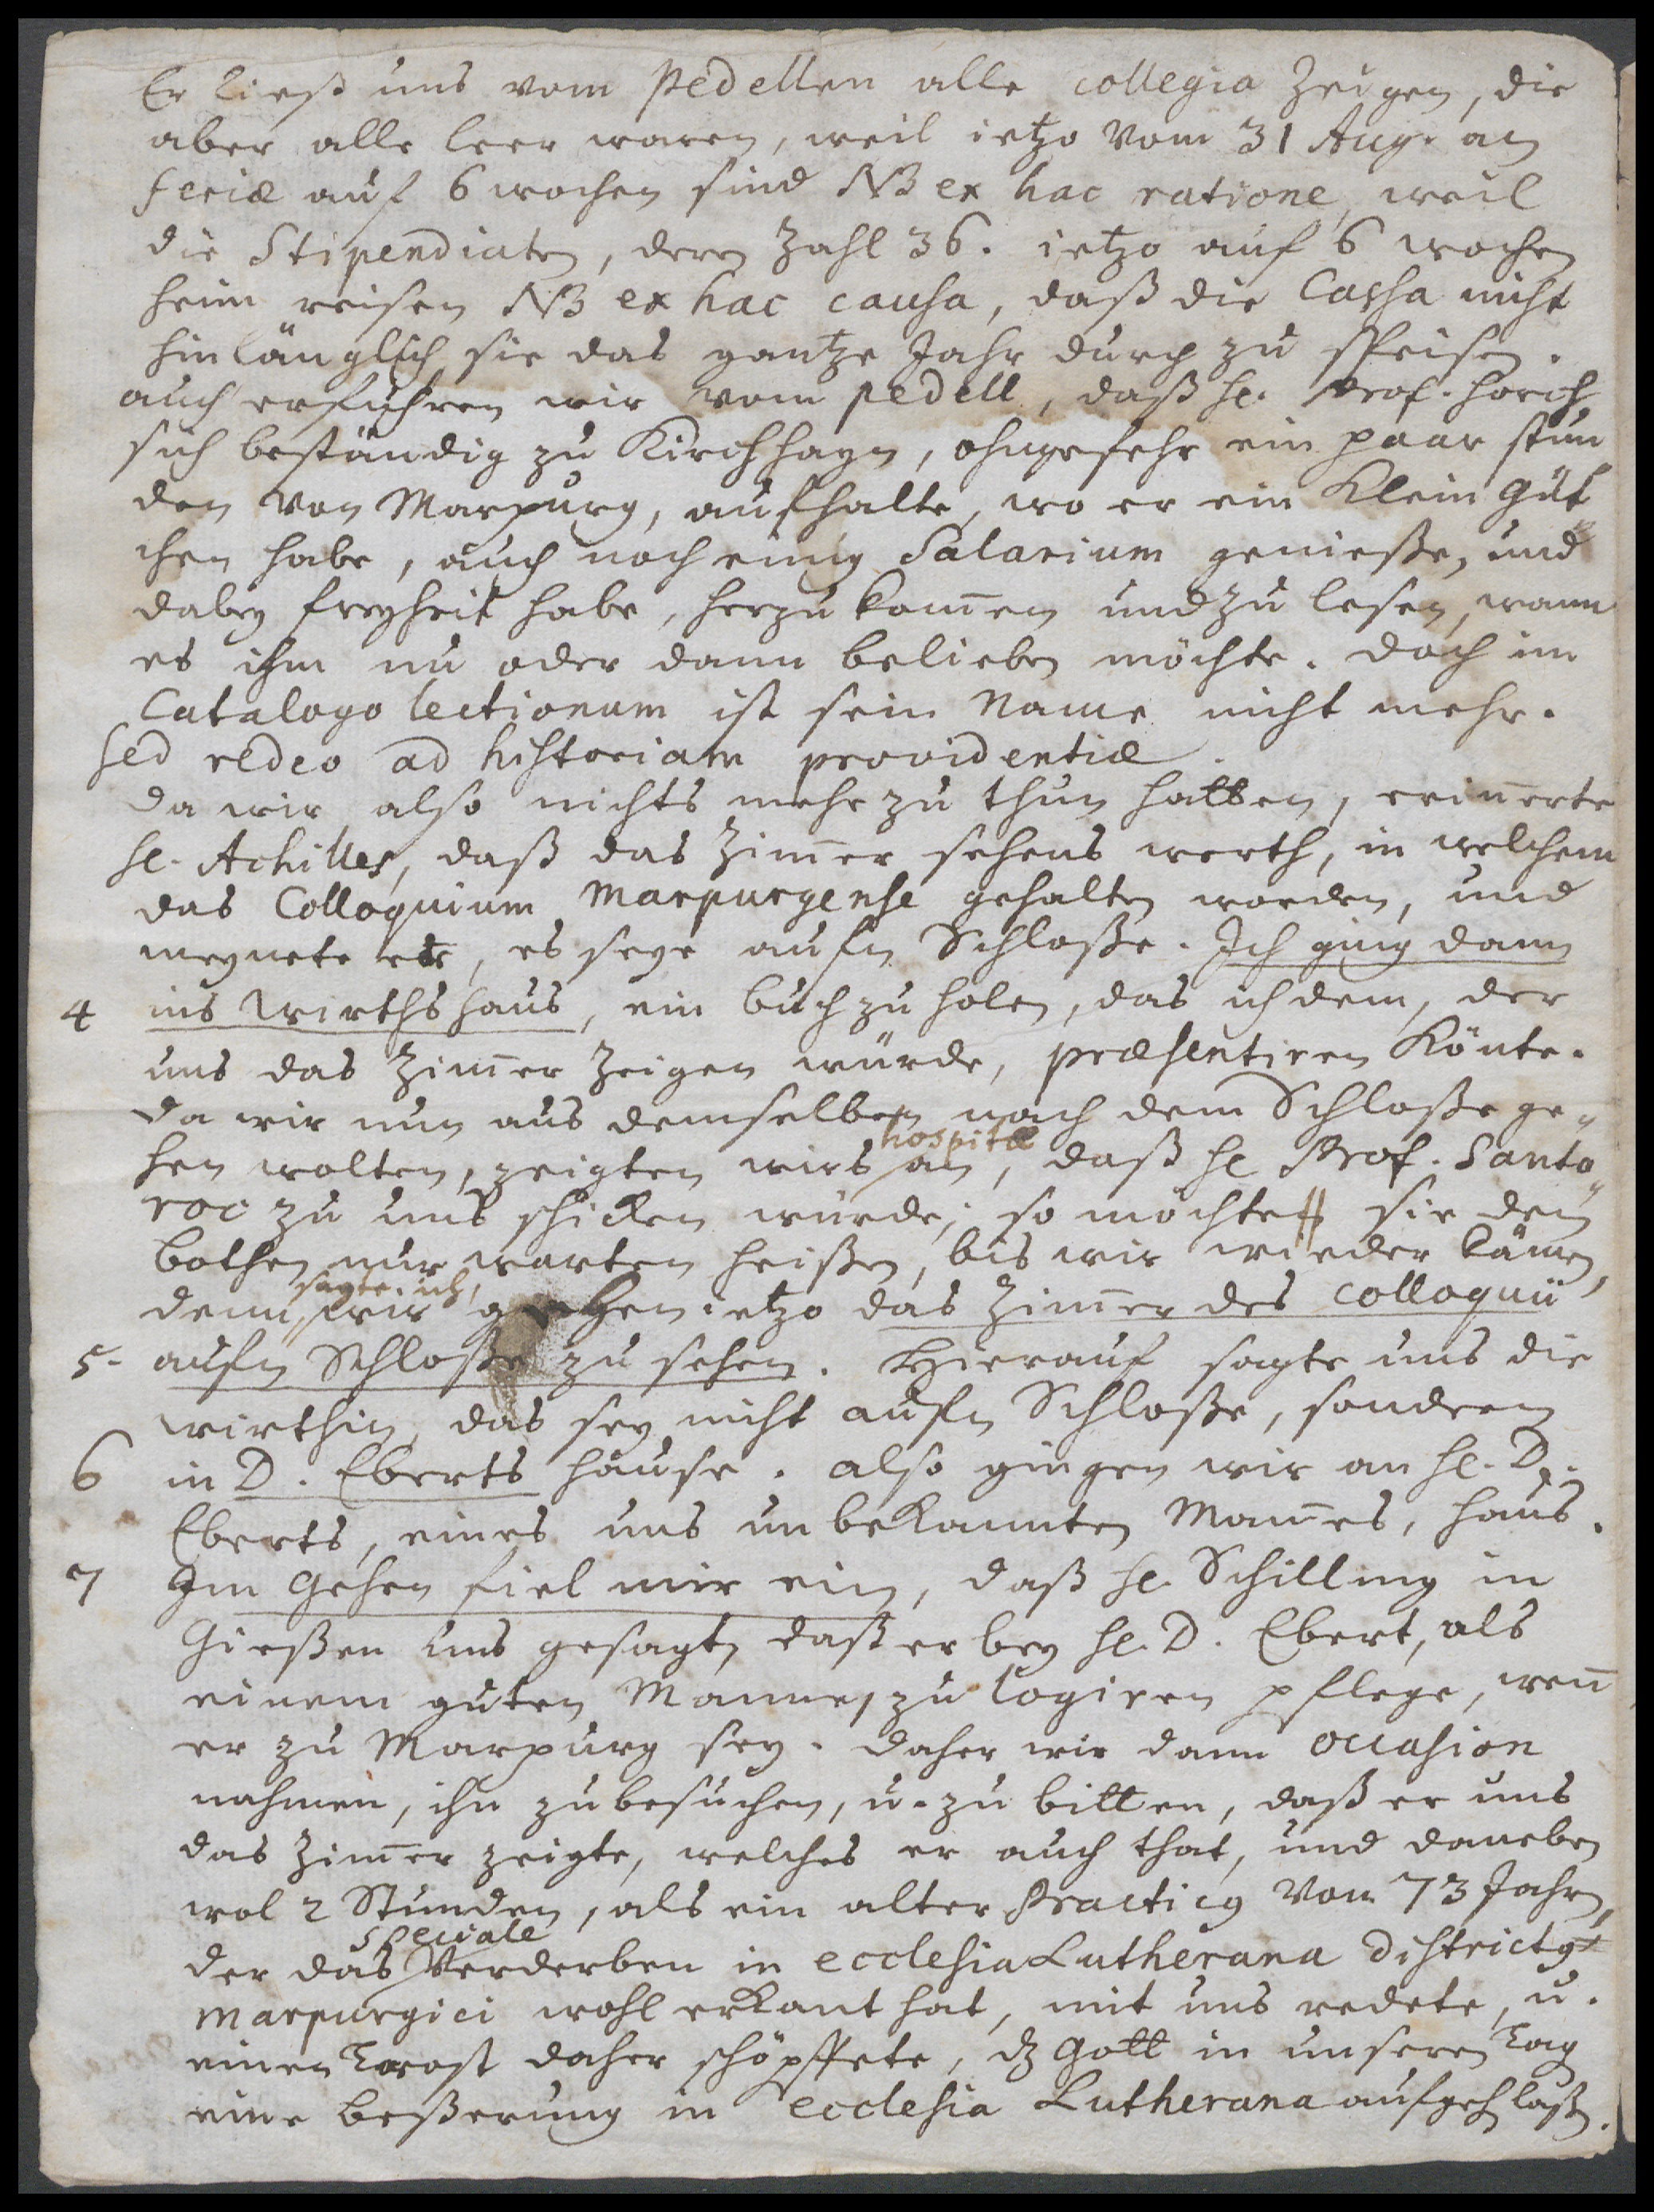 Er ließ uns vom Pedellen alle collegia zeigen, die
aber alle leer waren, weil ietzo vom 31 Aug. an
feriæ auf 6 wochen sind NB ex hac ratione, weil
die Stipendiaten, deren Zahl 36. ietzo auf 6 wochen
heim reisen NB ex hac causa, daß die Cassa nicht
hinlänglich, sie das gantze Jahr durch zu speisen.
auch erfuhren wir vom pedell, daß hl. Prof. Horch
sich beständig zu Kirchhayn, ohngefehr ein paar stun
den von Marpurg, aufhalte, wo er ein klein Güt
chen habe, auch noch einig Salarium genieße, und
dabey freyheit habe, herzukom̄en und zu lesen, wann
es ihm nu oder dann belieben möchte. doch im
Catalogo lectionum ist sein Name nicht mehr.
sed redeo ad historiam providentiæ.
da wir also nichts mehr zu thun hatten, erin̄erte
hl. Achilles, daß das Zim̄er sehens werth, in welchem
das Colloquium Marpurgense gehalten worden, und
meynete er, es seye aufm Schloße. Ich ging dann
4 ins Wirthshaus, ein buch zu holen, das ich dem, der
uns das Zim̄er zeigen würde, præsentiren könte.
da wir nun aus demselben nach dem Schloße ge„
hospitæ
hen wolten, zeigten wirs an, daß hl Prof. Santo„
roc zu uns schicken würde; so möchte sie den
bothen nur warten heißen, bis wir wieder kämen,
sagte ich,
denn wir gehen ietzo das Zim̄er des colloquii
5. aufm Schloße zu sehen. Hierauf sagte uns die
wirthin, das sey nicht aufm Schloße, sondern
6 in D. Eberts hause. also gingen wir an hl. D.
Eberts, eines uns unbekannten Man̄es, haus.
7 Im Gehen fiel mir ein, daß hl. Schilling in
Gießen uns gesagt, daß er bey hl. D. Ebert, als
einem guten Manne, zu logiren pflege, wen̄
er zu Marpurg sey. daher wir dann occasion
nahmen, ihn zu besuchen, u. zu bitten, daß er uns
das Zim̄er zeigte, welches er auch that, und daneben
wol 2 Stunden, als ein alter Practicus von 73 Jahren,
speciale
der das Verderben in ecclesia Lutherana districtus
Marpurgici wohl erkant hat, mit uns redete, u.
einen Trost daher schöpffete, dz Gott in unseren Tagen
eine beßerung in ecclesia Lutherana aufgehen laßen.